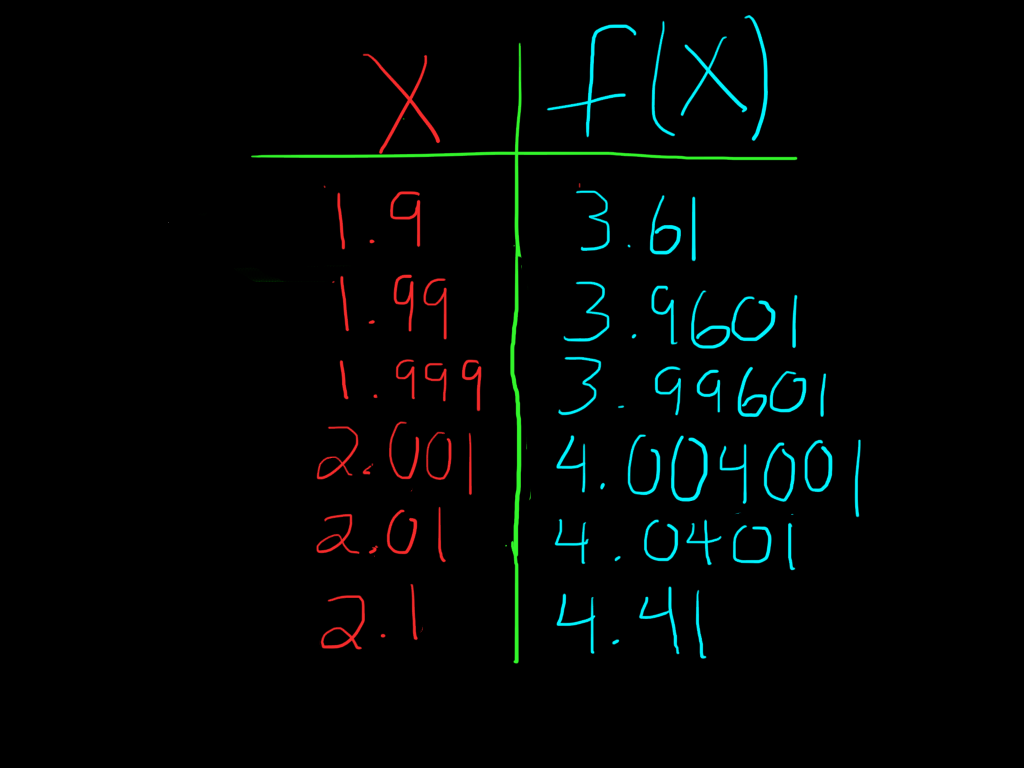 X f(X)
1.9 3.61
1.99 3.9601
1.999 3.99601
2.001 4.004001
2.01 4.0401
2.1 4.41